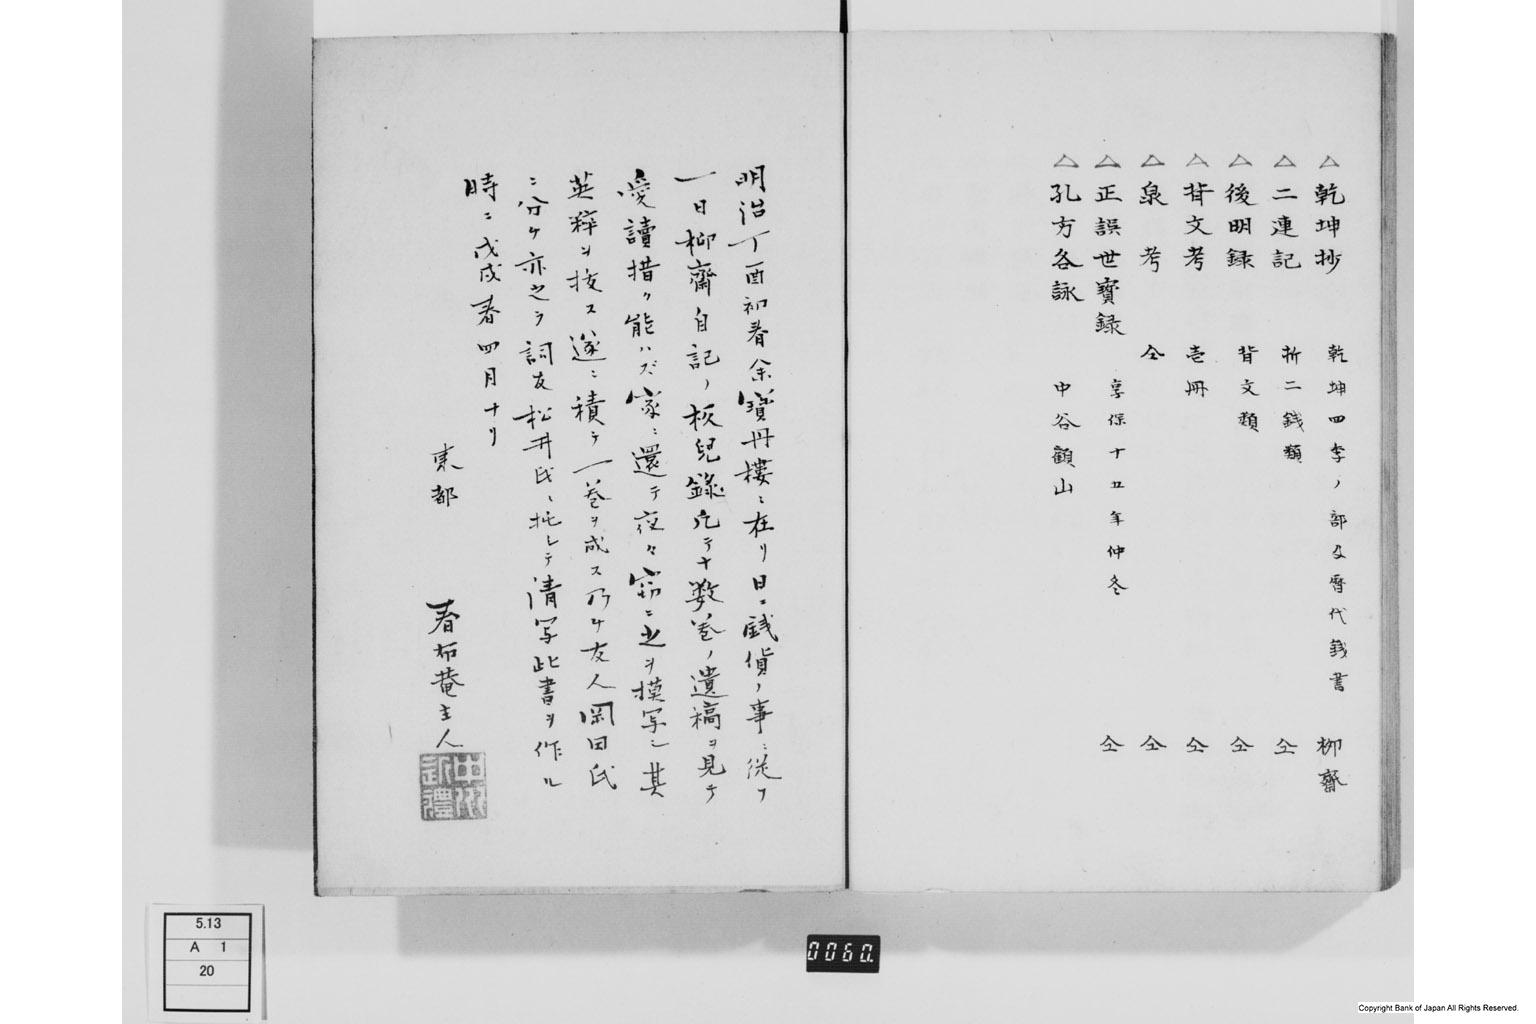 △乾坤抄 乾坤四季ノ部及暦代銭書 柳齋
△二連記 折二銭類 仝
△後明録 背文類 仝
△背文考 壱冊 仝
△泉考 仝 仝
△正誤世寶録 享保十五年仲冬 仝
△孔方各詠 中谷顧山
明治丁酉初春余寶丹樓ニ在リ日ニ銭貨ノ事ニ従フ
一日柳齋自記ノ板兒錄凢テ十数巻ノ遺稿ヲ見テ
愛讀措ク能ハズ家ニ還テ夜々窃ニ之ヲ摸写シ其
英粹ヲ抜ス遂ニ積テ一巻ヲ成ス乃ケ友人岡田氏
ニ分ケ亦之ラ詞友松井氏ニ托シテ清写此書ヲ作ル
時ニ戊戌春四月十リ
東都
春 菴主人
5.13
A 1
20
0060.
Copyright Bank of Japan All Rights Reserved.